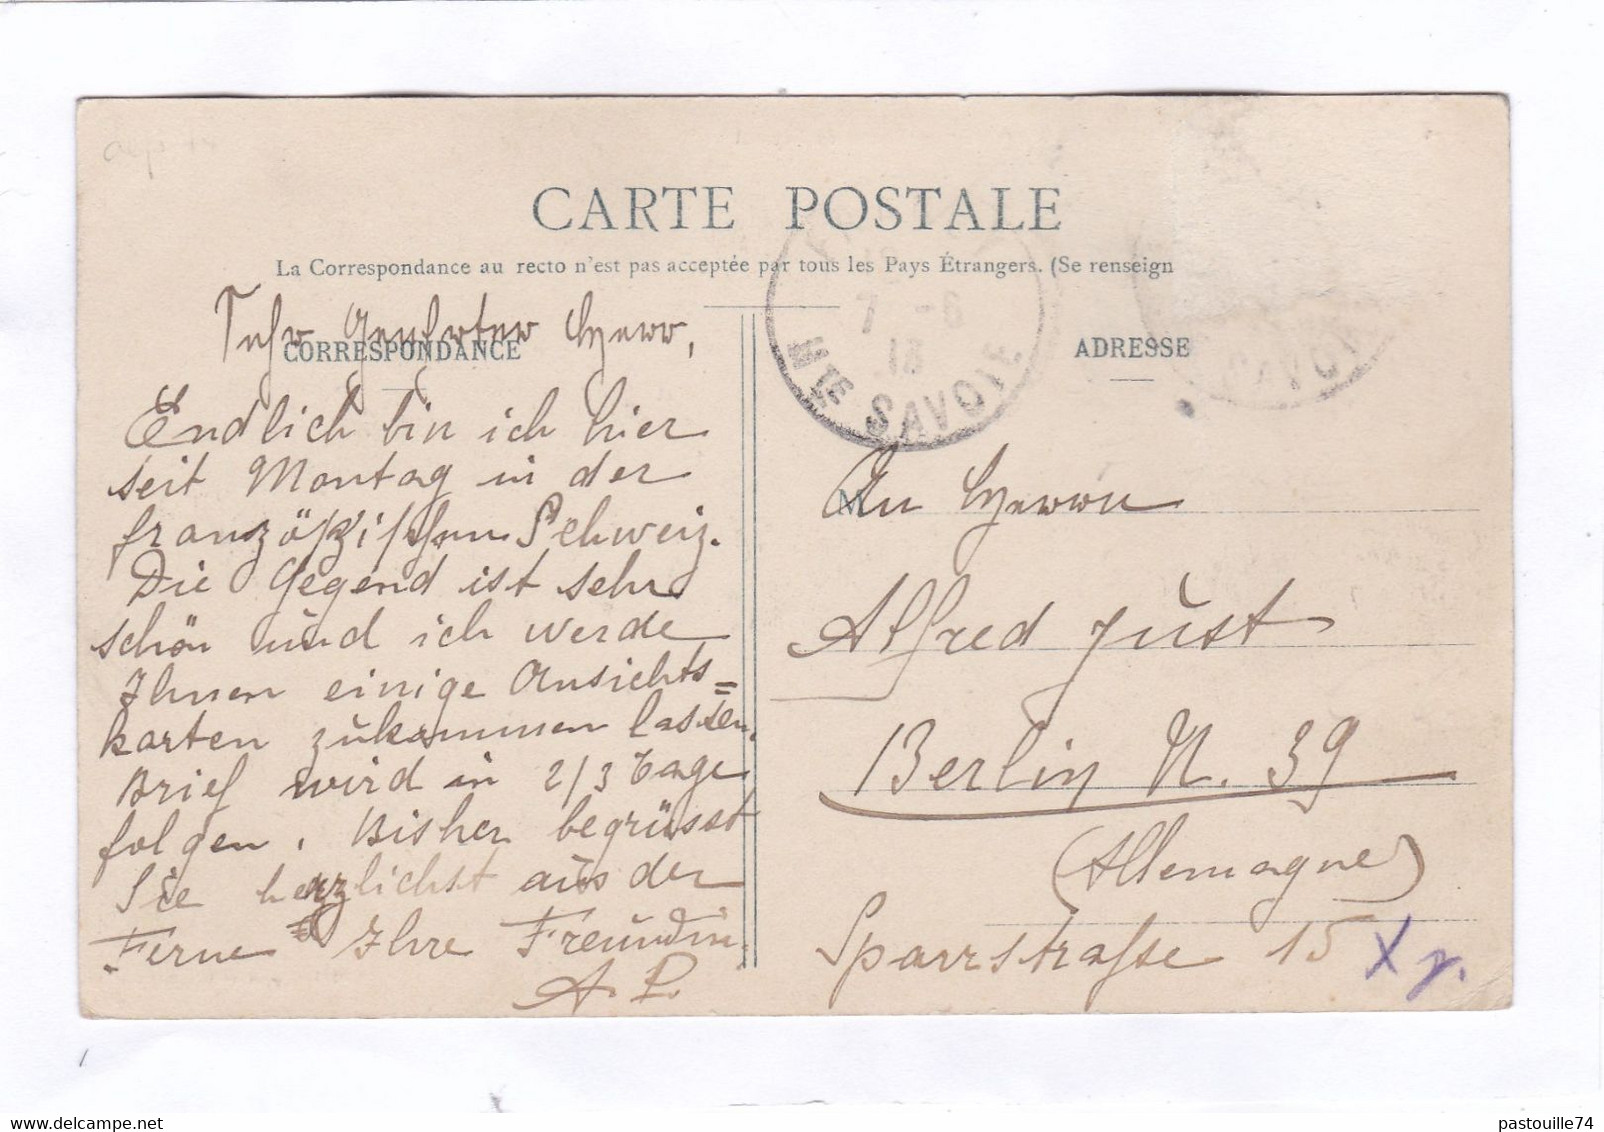 CARTE POSTALE
La Correspondance au recto n'est pas acceptée par tous les Pays Étrangers. (Se renseign
CORRESPONDANCE
Sehr Geehrter Herr,
Endlich bin ich hier
seit Montag in der
französischen Schweiz.
Die Gegend ist sehr
schön und ich werde
Ihnen einige Ansichts=
karten zukommen lassen.
Brief wird in 2/3 Tage
folgen. Bisher begrüsst
Sie herzlichst aus der
Ferne Ihre Freundin.
A. P.
7 -6
13
HTE SAVOIE
ADRESSE
SAVOI
M
An Herrn
Alfred Just
Berlin N. 39
(Allemagne)
Sparrstrasse 15
pastouille74